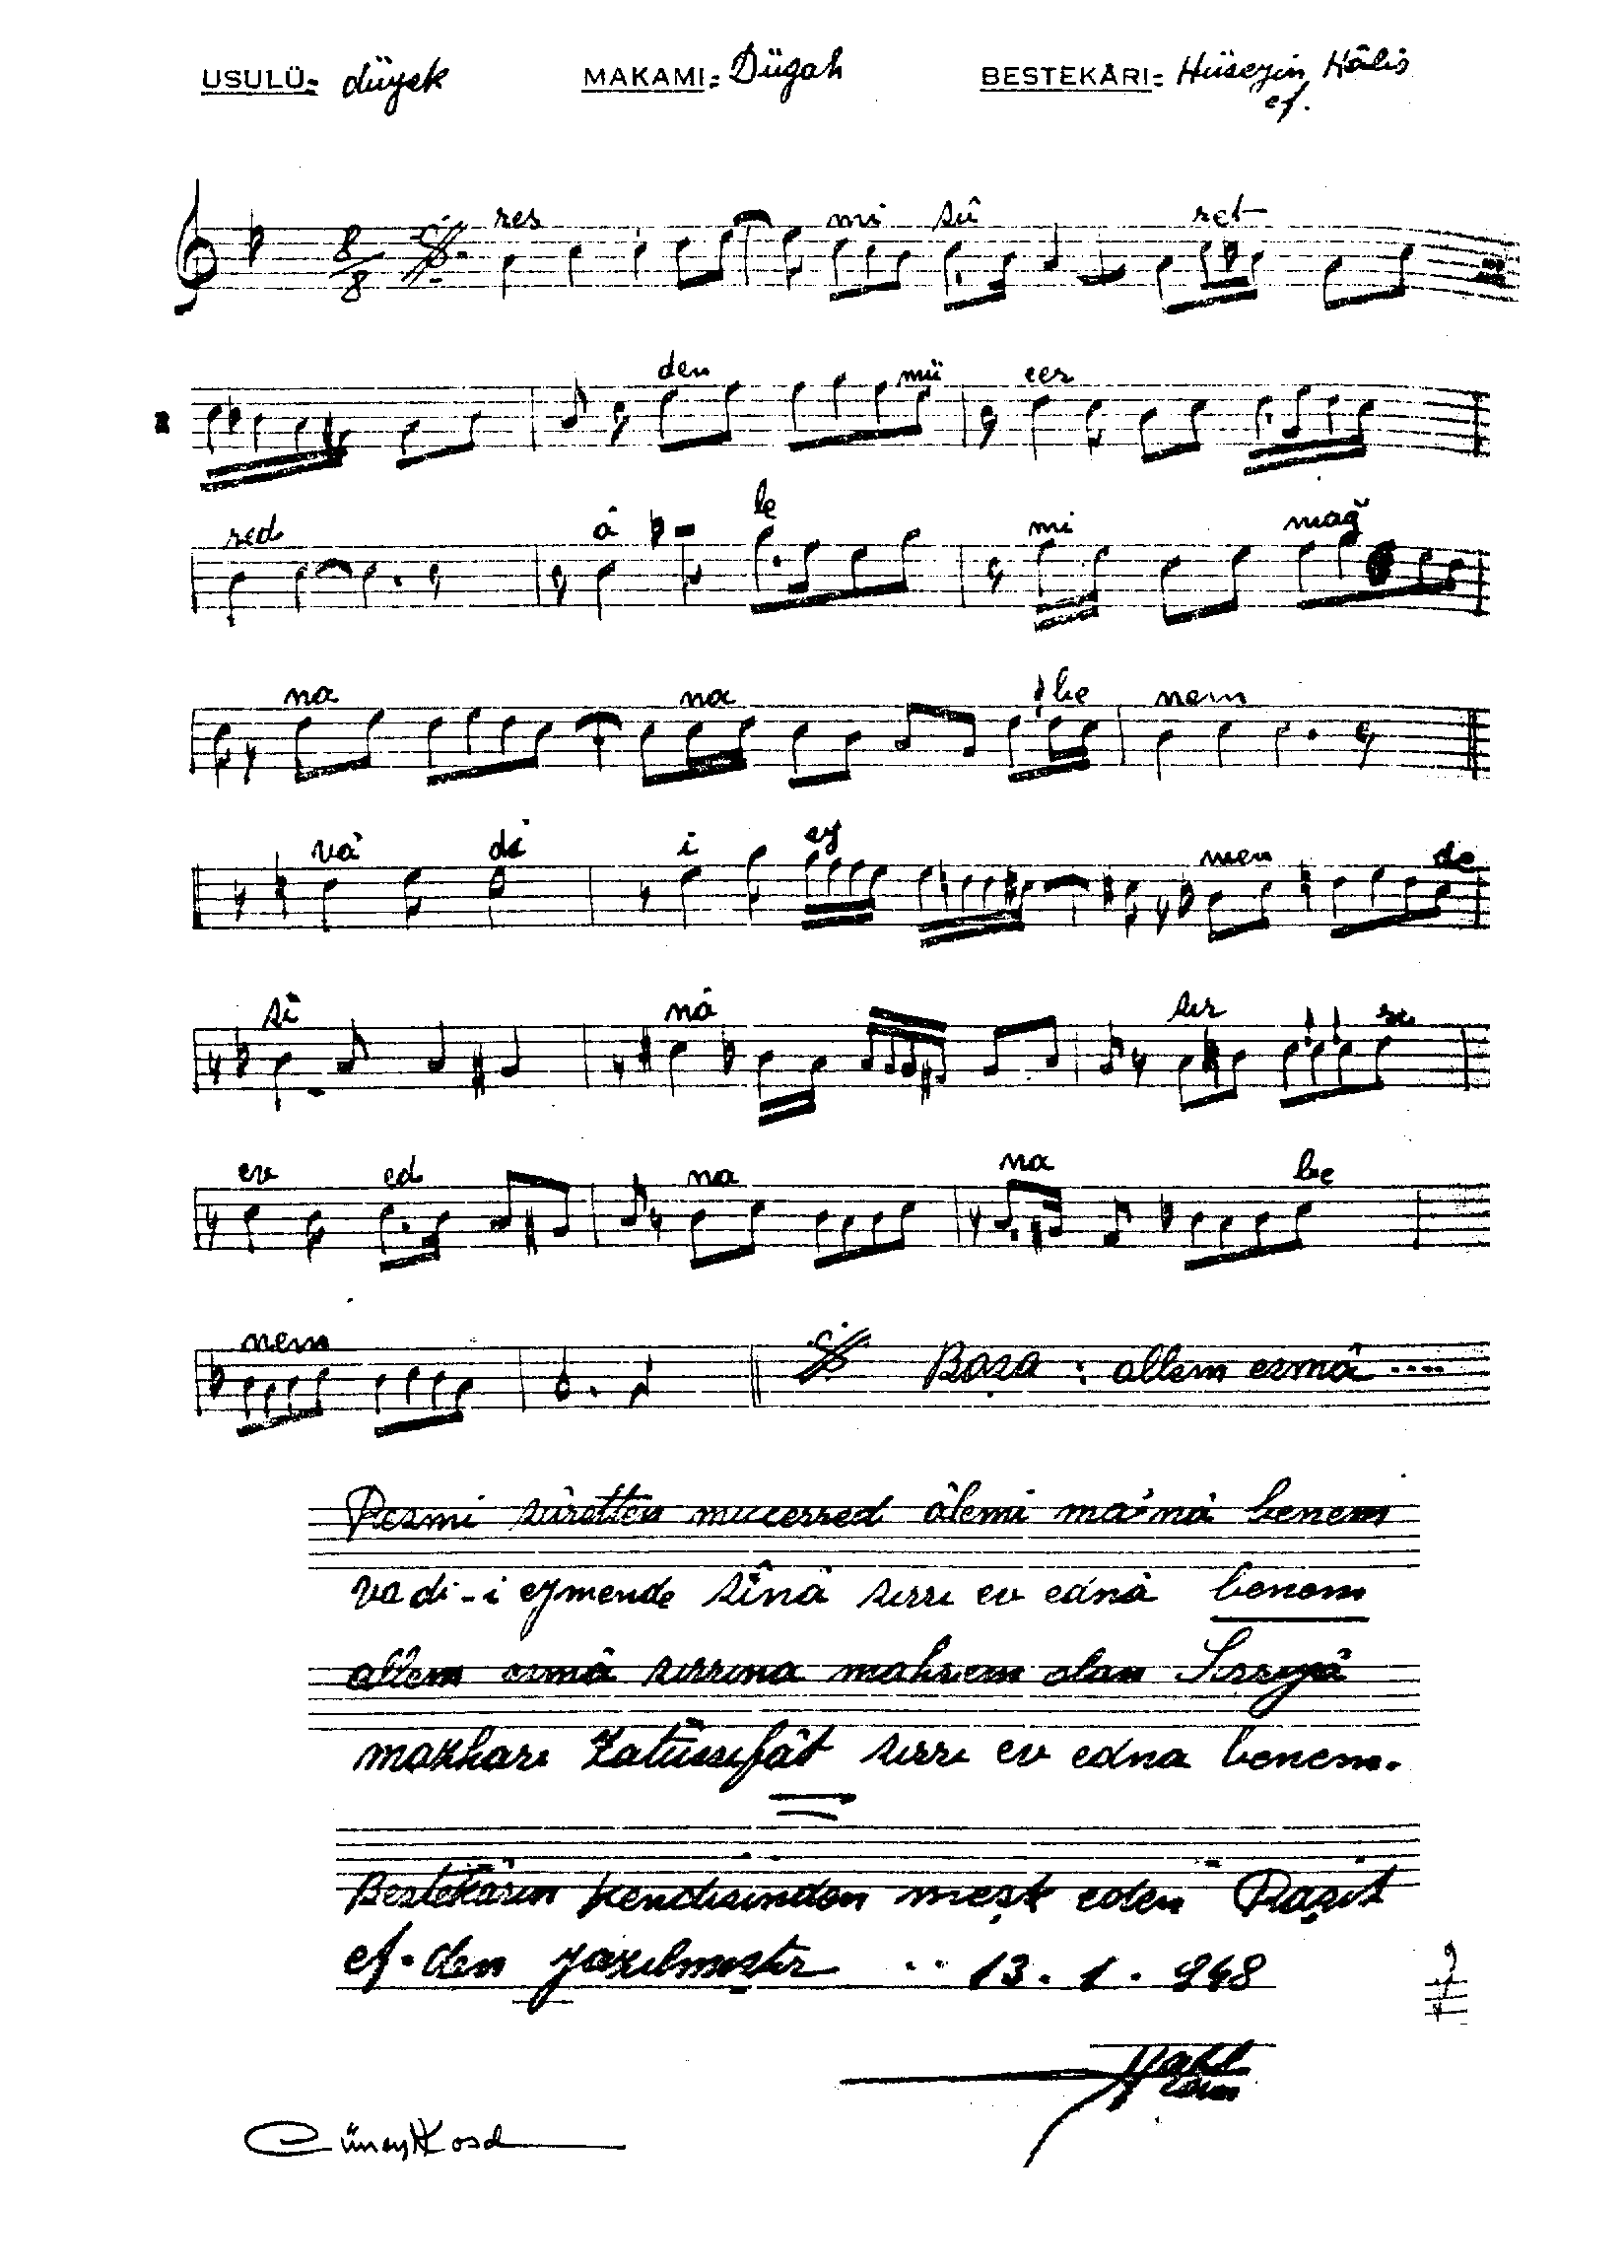 USULÜ= düyek MAKAMI= Dügah BESTEKÂRI= Hüseyin Hâlis
ef.
8/8 res mi sû ret
den mü cer
red â le mi mağ
na na be nem
vâ dî i ey men de
sî nâ sır rı
ev ed na na be
nem Başa : allem esmâ ....
Resmi sûretten mucerred âlemi ma'nâ benem
vadi-i eymende sînâ sırrı ev ednâ benem
allem esmâ sırrına mahrem olan Sırrıyâ
mazharı Zatüssıfât sırrı ev edna benem.
Bestekârın kendisinden meşk eden Raşit
ef. den yazılmıştır .. 13. 1. 968